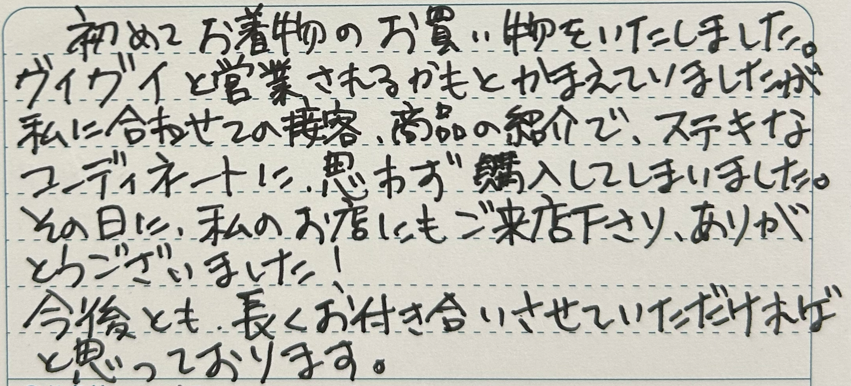 初めてお着物のお買い物をいたしました。
ヴィヴィと営業されるかもとかまえていましたが
私に合わせての接客、商品の紹介で、ステキな
コーディネートに、思わず購入してしまいました。
その日に、私のお店にもご来店下さり、ありが
とうございました!
今後とも、長くお付き合いさせていただければ
と思っております。